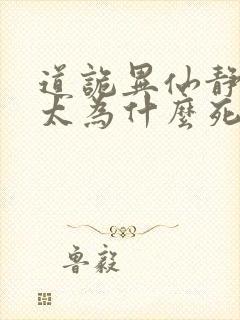 道詭異仙靜
太為什麼死
魯毅